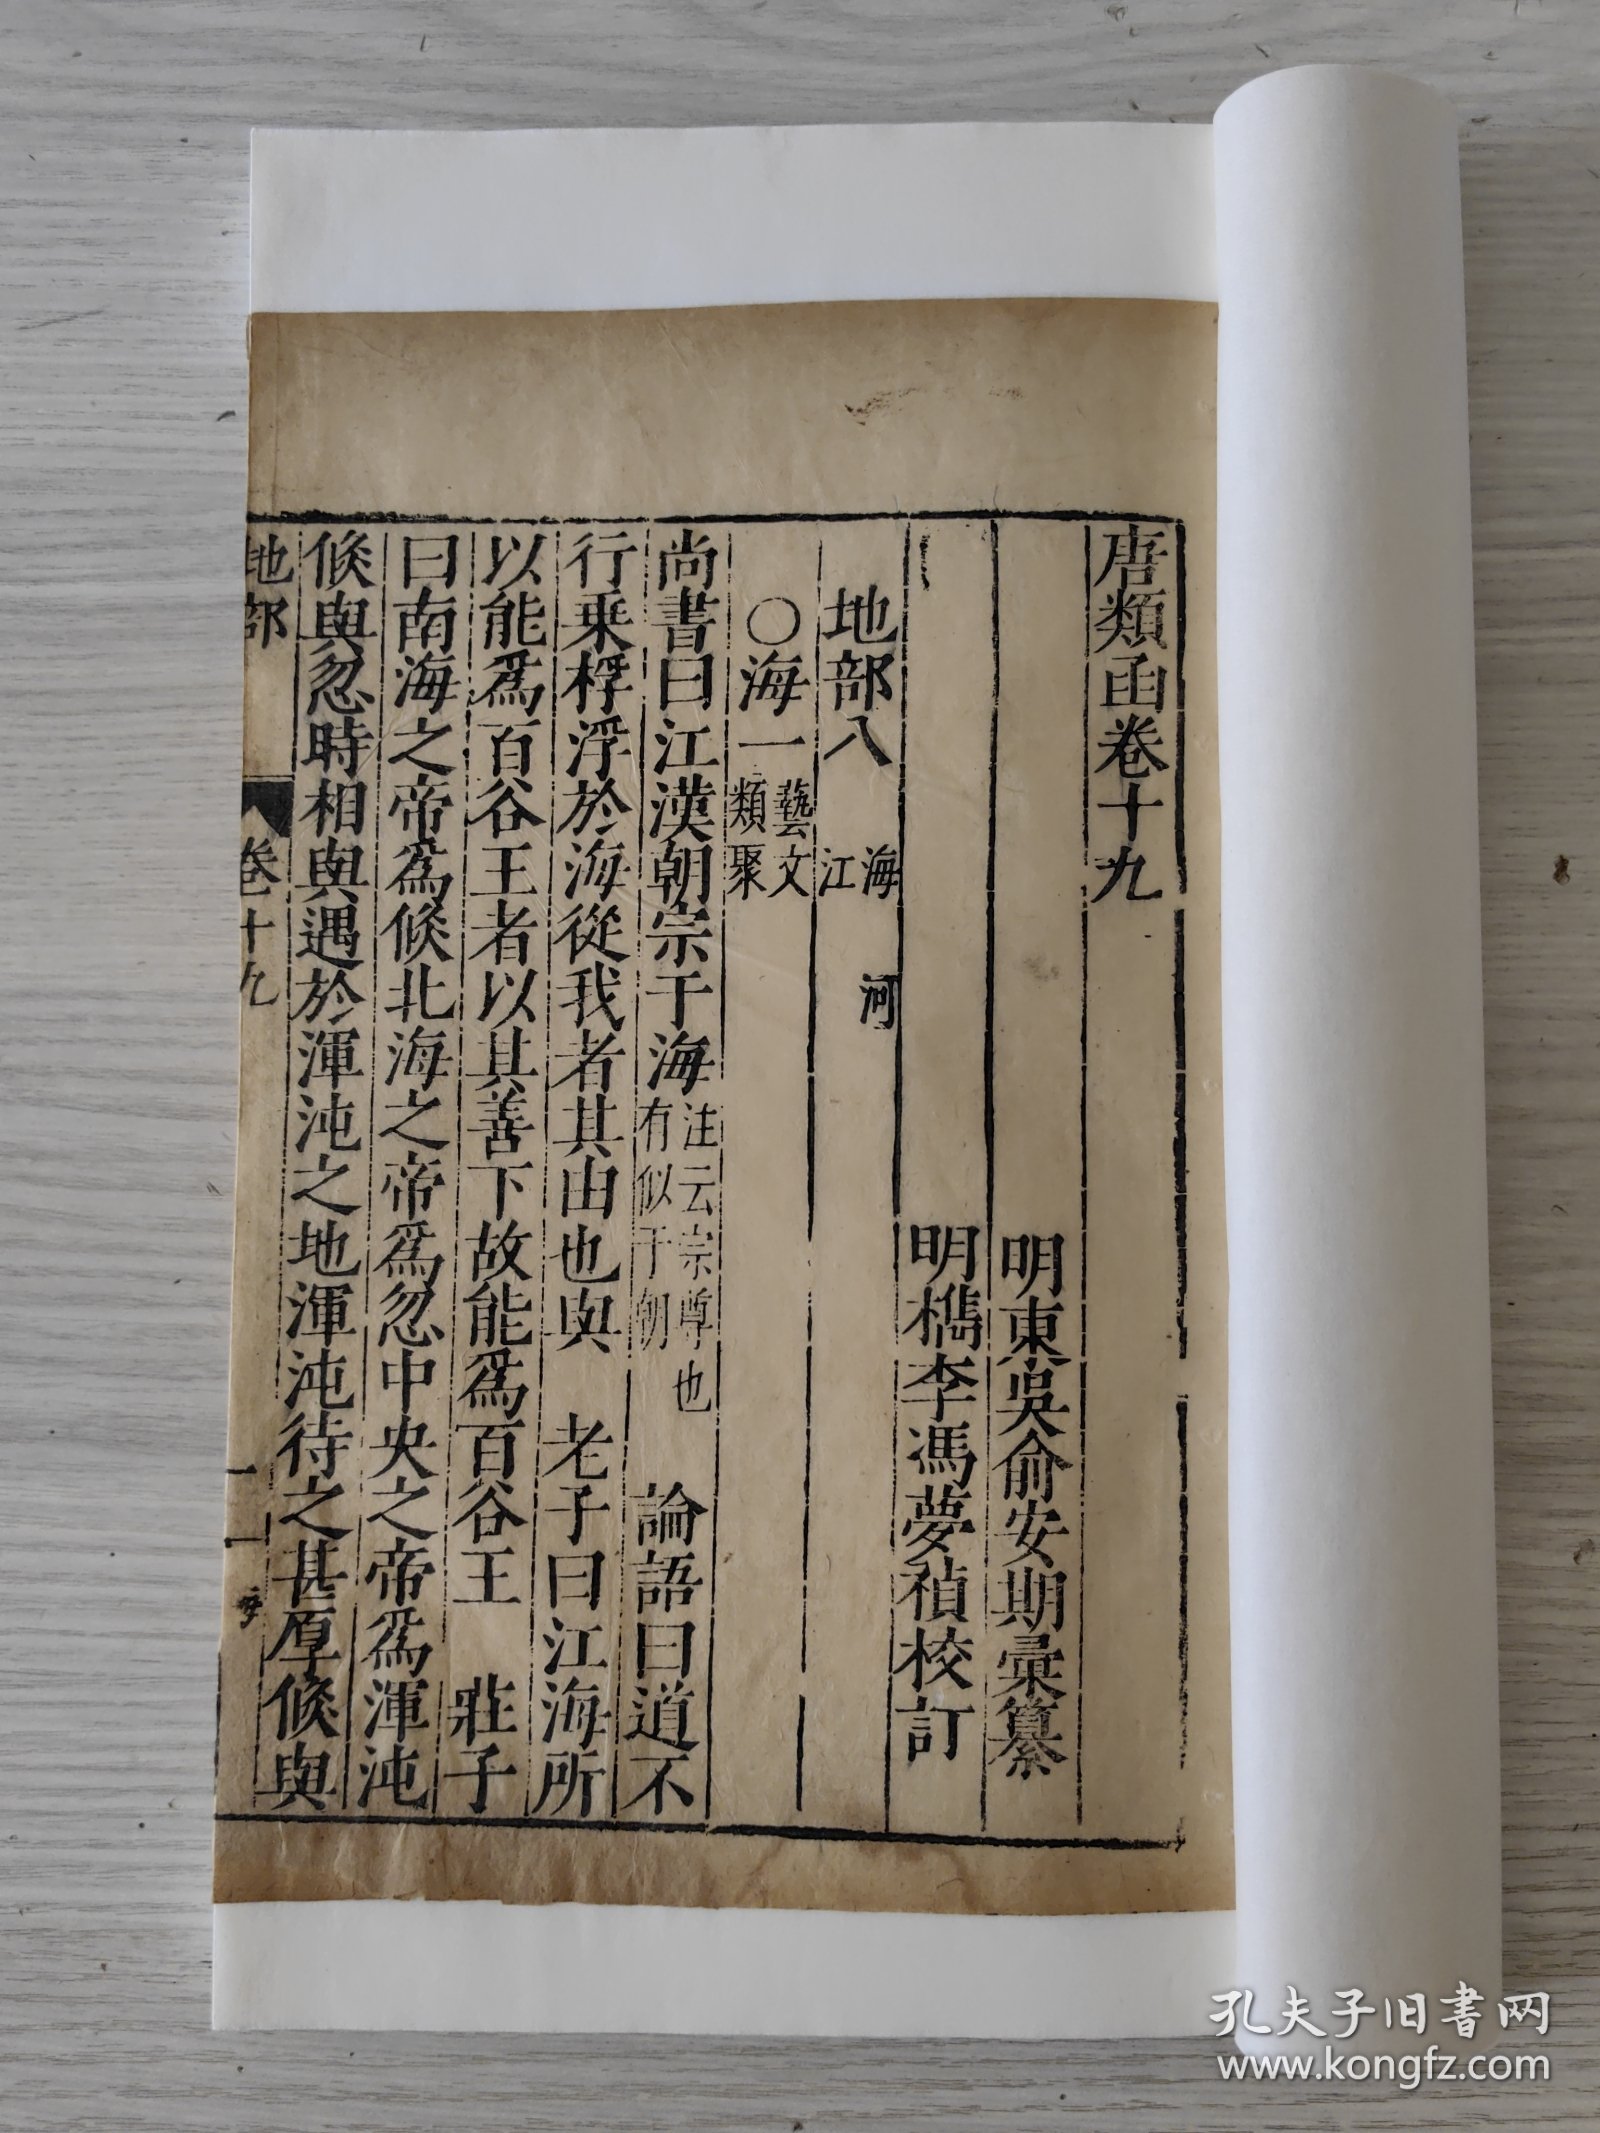 唐類函卷十九
明東吳俞安期彙纂
明檇李馮夢禎校訂
地部八 海 河
江
○海一 藝文
類聚
尚書曰江漢朝宗于海 注云宗尊也
有似于朝 論語曰道不
行乗桴浮於海從我者其由也與 老子曰江海所
以能爲百谷王者以其善下故能爲百谷王 莊子
曰南海之帝爲倏北海之帝爲忽中央之帝爲渾沌
倏與忽時相與遇於渾沌之地渾沌待之甚厚倏與
地部 卷十九
孔夫子旧书网
www.kongfz.com